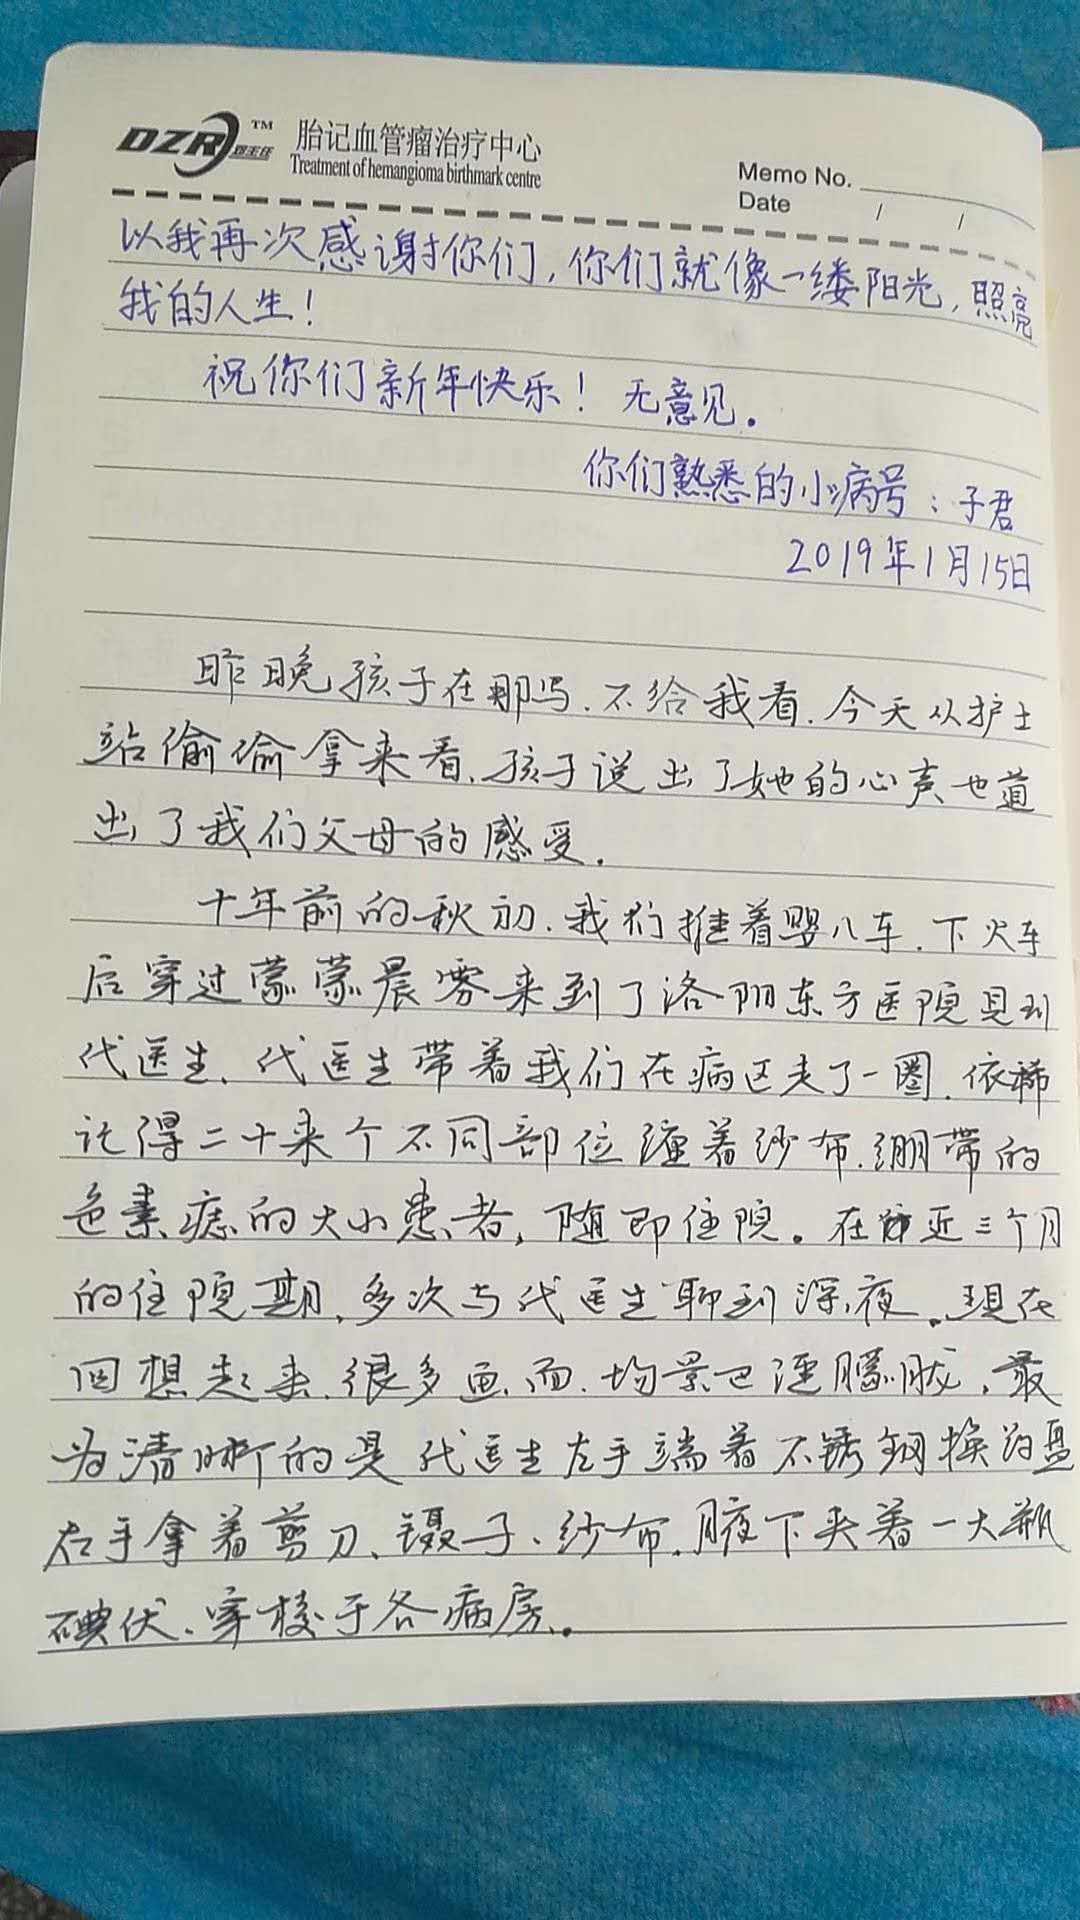 DZR TM 胎记血管瘤治疗中心
Treatment of hemangioma birthmark centre
Memo No.
Date / /
以我再次感谢你们,你们就像一缕阳光,照亮
我的人生!
祝你们新年快乐! 无意见。
你们熟悉的小病号:子君
2019年1月15日
昨晚孩子在那写.不给我看.今天从护士
站偷偷拿来看.孩子说出了她的心声也道
出了我们父母的感受.
十年前的秋初.我们推着婴儿车.下火车
后穿过蒙蒙晨雾来到了洛阳东方医院见到
代医生、代医生带着我们在病区走了一圈.依稀
记得二十来个不同部位缠着纱布.绷带的
色素痣的大小患者,随即住院。在近三个月
的住院期.多次与代医生聊到深夜.现在
回想起来.很多画面.均景已朦胧.最
为清晰的是代医生左手端着不锈钢换药盘
右手拿着剪刀、镊子、纱布.腋下夹着一大瓶
碘伏、穿梭于各病房.